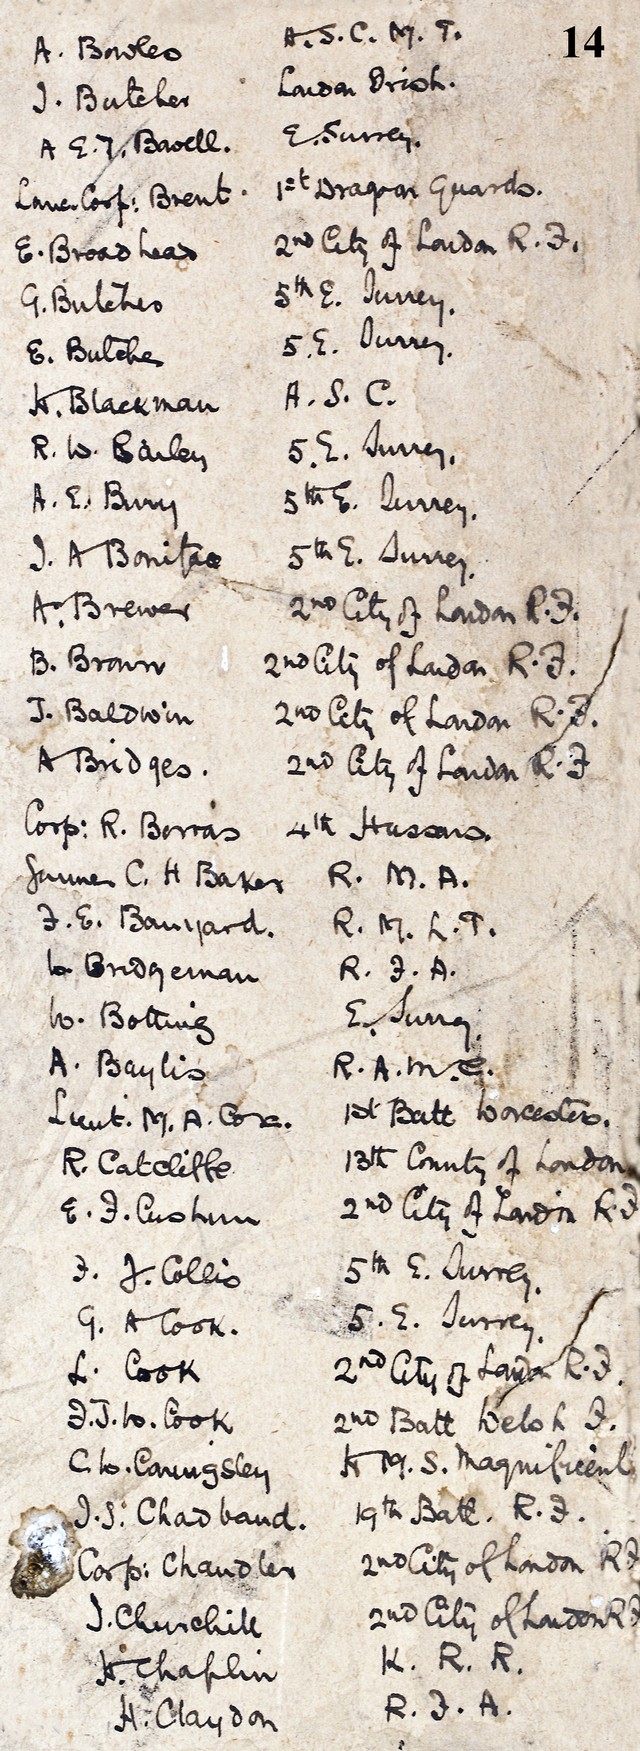 14
A. Bowles A. S. C. M. T.
J. Butcher London Irish.
A E. J. Bavell. E. Surrey.
Lance Corp: Brent. 1st Dragon Guards.
E. Broadhead 2nd City of London R. F.
G. Butcher 5th E. Surrey.
E. Butcher 5. E. Surrey.
H. Blackman A. S. C.
R. W. Bailey 5. E. Surrey.
A. E. Bury 5th E. Surrey.
J. A Boniface 5th E. Surrey.
A. Brewer 2nd City of London R. F.
B. Brown 2nd City of London R. F.
J. Baldwin 2nd City of London R. F.
A Bridges. 2nd City of London R. F
Corp: R. Borras 4th Hussars.
Gunner C. H Baker R. M. A.
F. E. Banyard. R. M. L. T.
W. Bridgeman R. F. A.
W. Botting E. Surrey.
A. Baylis R. A. M. C.
Lieut. M. A. Cox. 1st Batt Worcesters.
R. Catcliffe 13th County of London
E. F. 2nd City of London R. F
F. J. Collis 5th E. Surrey.
G. A Cook. 5. E. Surrey.
L. Cook 2nd City of London R. F.
F. J. W. Cook 2nd Batt Welsh F.
C. W. H M. S. Magnificent
J. S. Chadband. 19th Batt. R. F.
Corp: Chandler 2nd City of London RF
J. Churchill 2nd City of London RF
H. Chaplin K. R. R.
H. Claydon R. F. A.